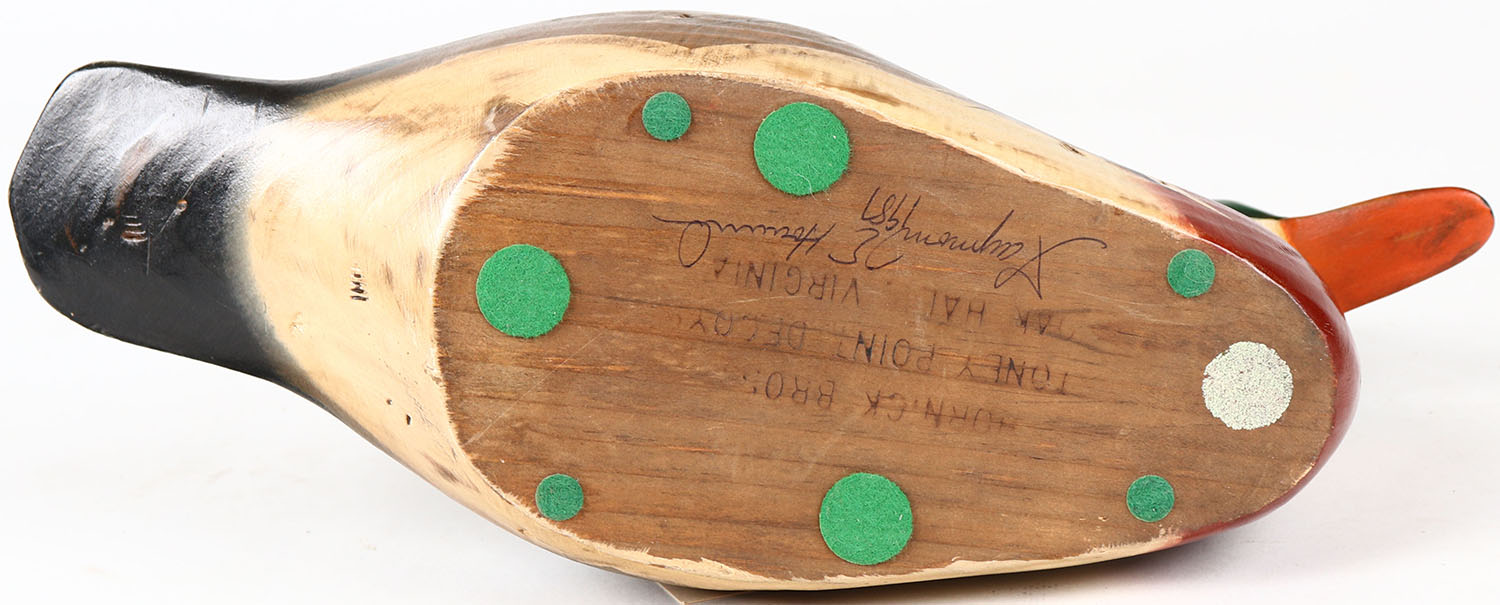 HORNICK BROS.
TONEY POINT DECOYS
OAK HAL . VIRGINIA
Raymond E Hornick
1987